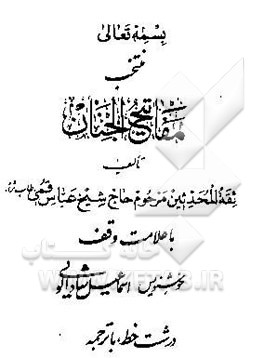 بسمه تعالی
منتخب
مفاتیح الجنان
تألیف
ثقة المحدثین مرحوم حاج شیخ عباس قمی طاب ثراه
با علامت وقف
خوشنویس اسماعیل شادالوئی
درشت خط، با ترجمه